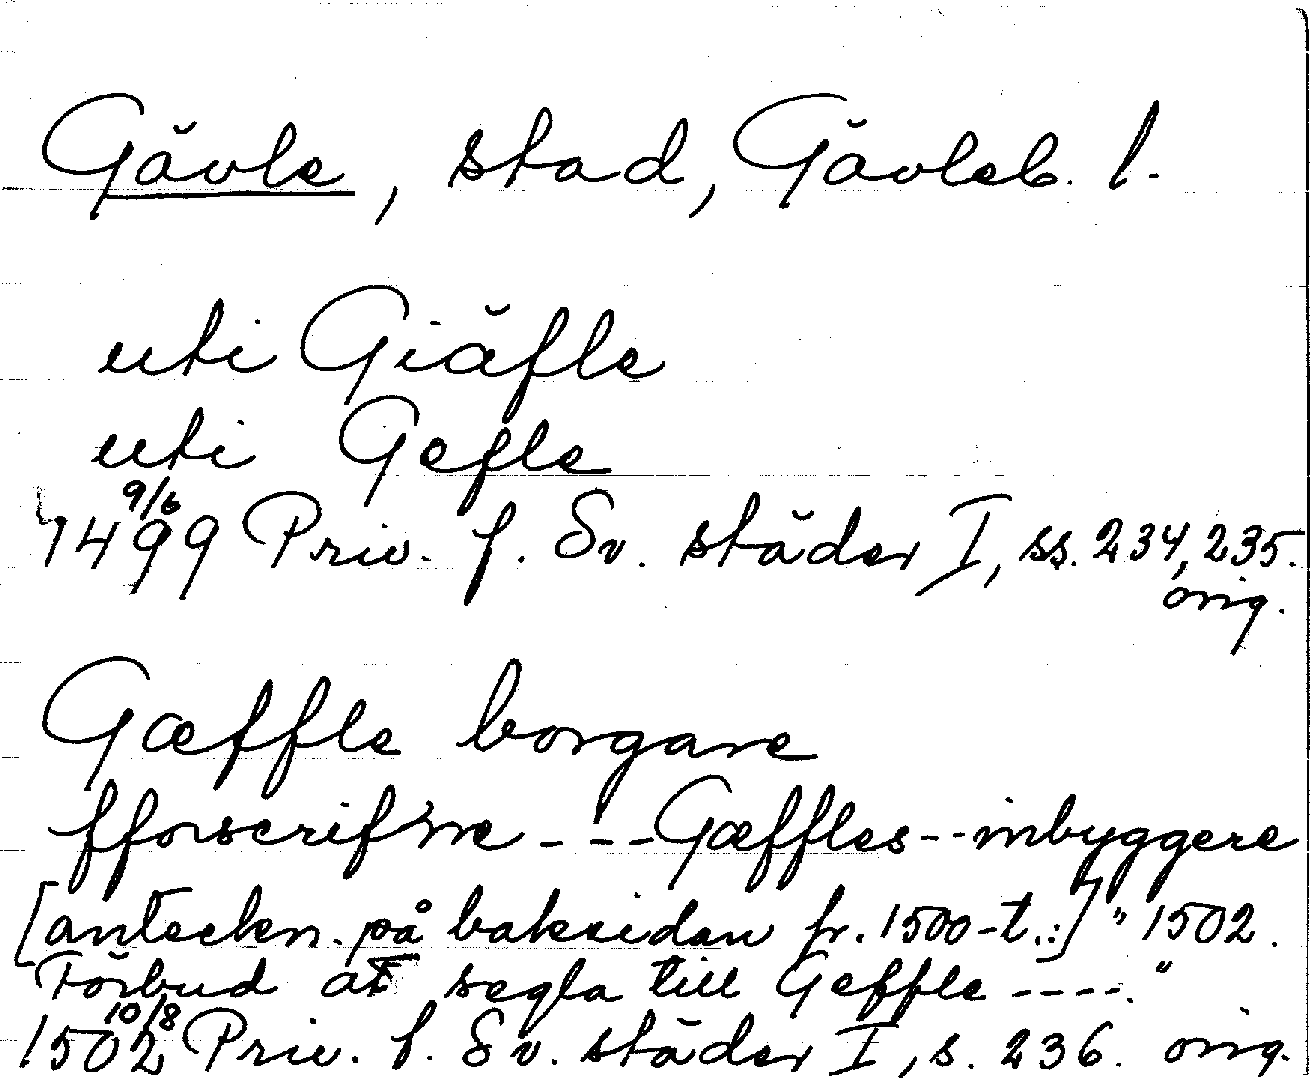 Gävle, stad, Gävleb. l.
uti Giäfle
uti Gefle
1499 9/6 Priv. f. Sv. städer I, ss. 234, 235.
orig.
Gæffle borgare
fforscrifne - - - Gæffles - - inbyggere
[anteckn. på baksidan fr. 1500-t.:] " 1502.
Förbud at segla till Geffle - - - -."
1502 10/8 Priv. f. Sv. städer I, s. 236. orig.